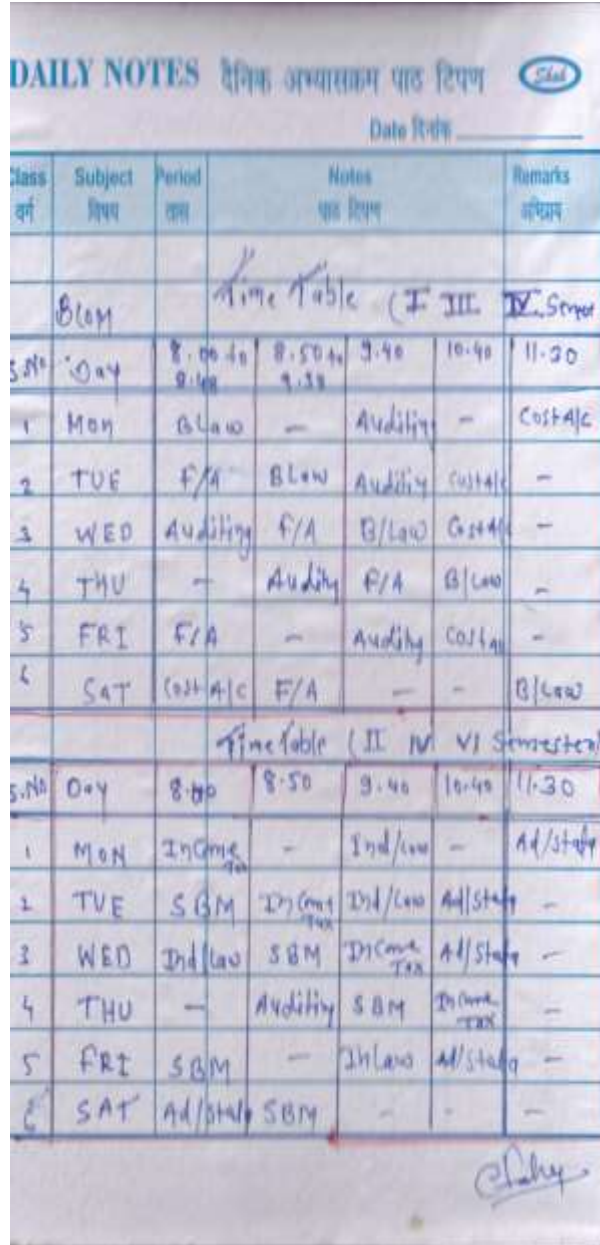 DAILY NOTES दैनिक अभ्यासक्रम पाठ टिपण Shah
Date दिनांक
Class Subject Period Notes Remarks
वर्ग विषय तास पाठ टिपण अभिप्राय
Time Table (I III IV Semes
BCOM
S.No Day 8.00 to 8.50 to 9.40 10.40 11.20
1 Mon BLaw – Auditing – Cost A/C
2 TUE F/A BLaw Auditing Cost A/c –
3 WED Auditing F/A B/Law Cost A/c –
4 THU – Auditing F/A B/Law –
5 FRI F/A – Auditing Cost A/c –
6 SAT Cost A/C F/A – – B/Law
Time Table (II IV VI Semester)
S.No Day 8.00 8.50 9.40 10.40 11.30
1 MON Income Tax – Ind/Law – Ad/Stats
2 TUE SBM Income Tax Ind/Law Ad/Stats –
3 WED Ind/Law SBM Income Tax Ad/Stats –
4 THU – Auditing SBM Income Tax –
5 FRI SBM – InLaw Ad/Stats –
6 SAT Ad/Stats SBM – – –